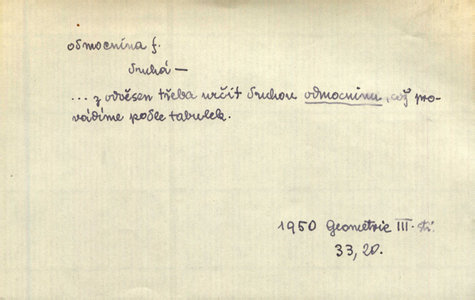 odmocnina f.
druhá —
... z odvěsen třeba určit druhou odmocninu, což pro-
vádíme podle tabulek.
1950 Geometrie III.
33, 20.